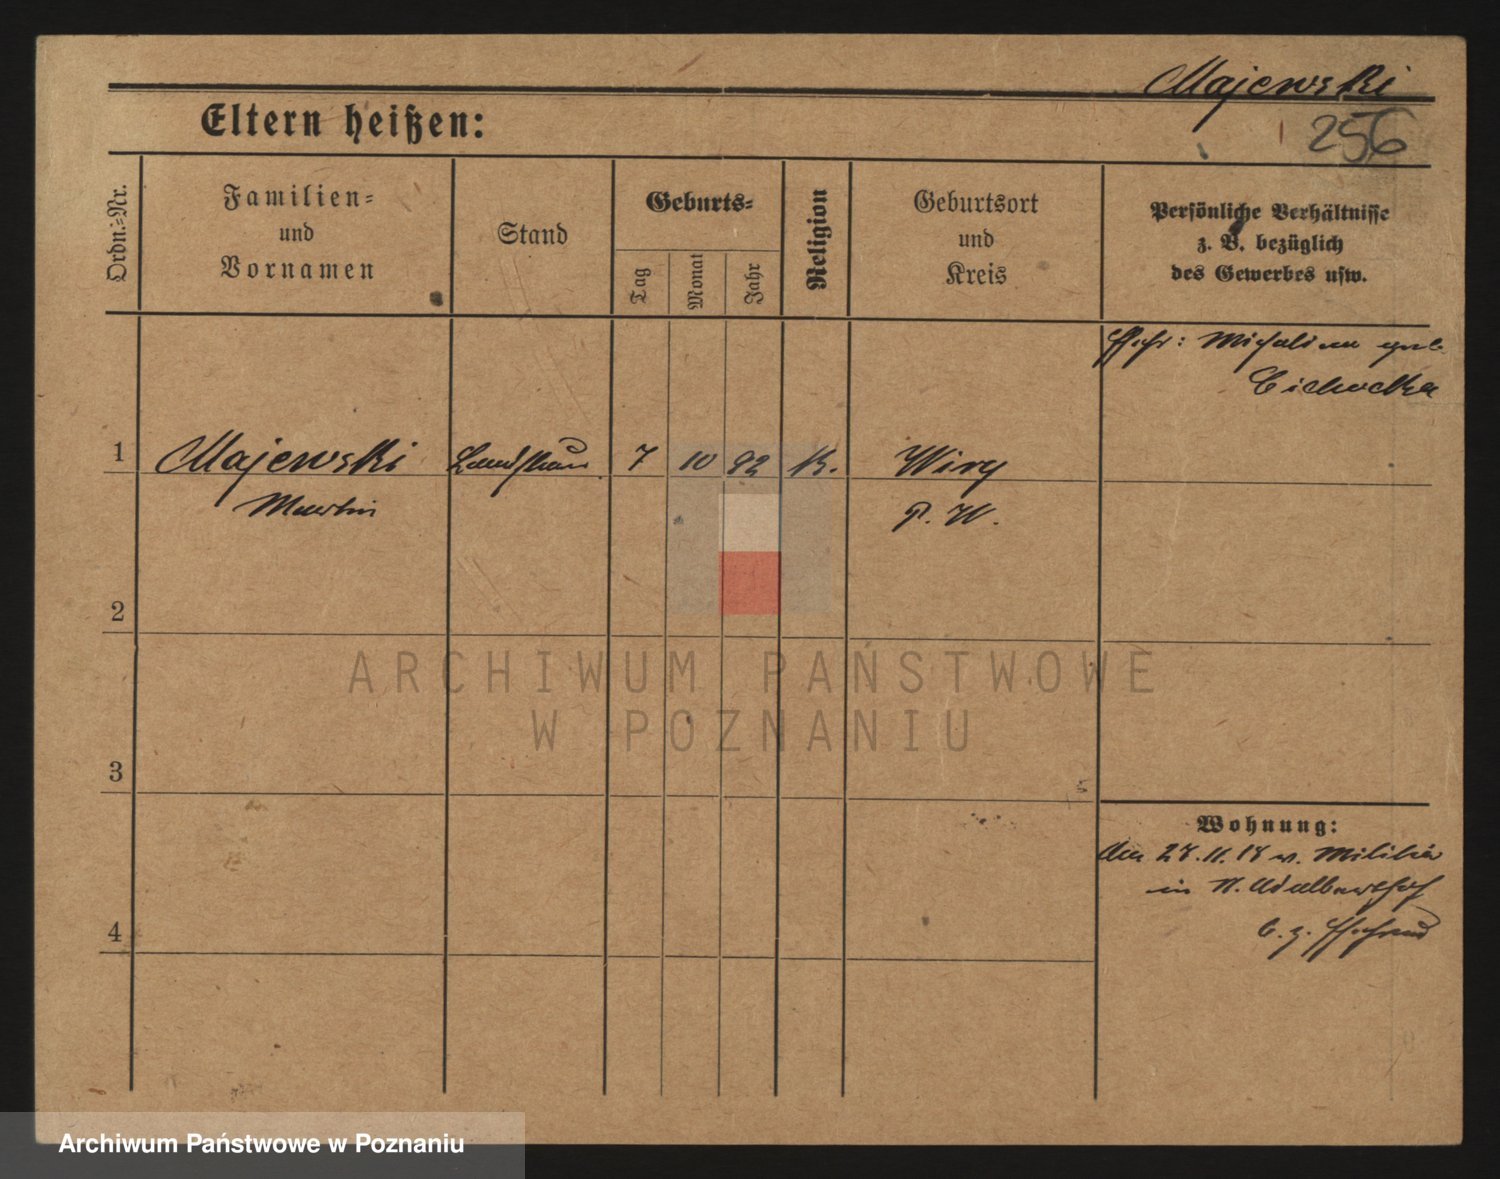 Majewski
256
Eltern heißen:
Ordn.-Nr.
Familien-
und
Vornamen
Stand
Geburts-
Tag
Monat
Jahr
Religion
Geburtsort
und
Kreis
Persönliche Verhältnisse
z. B. bezüglich
des Gewerbes usw.
Cichocka
1
Majewski
7
10
92
K.
Wiry
Martin
P. W.
2
ARCHIWUM PAŃSTWOWE
W POZNANIU
3
Wohnung:
27.11.18 v. Militär
in
4
b. z.
Archiwum Państwowe w Poznaniu